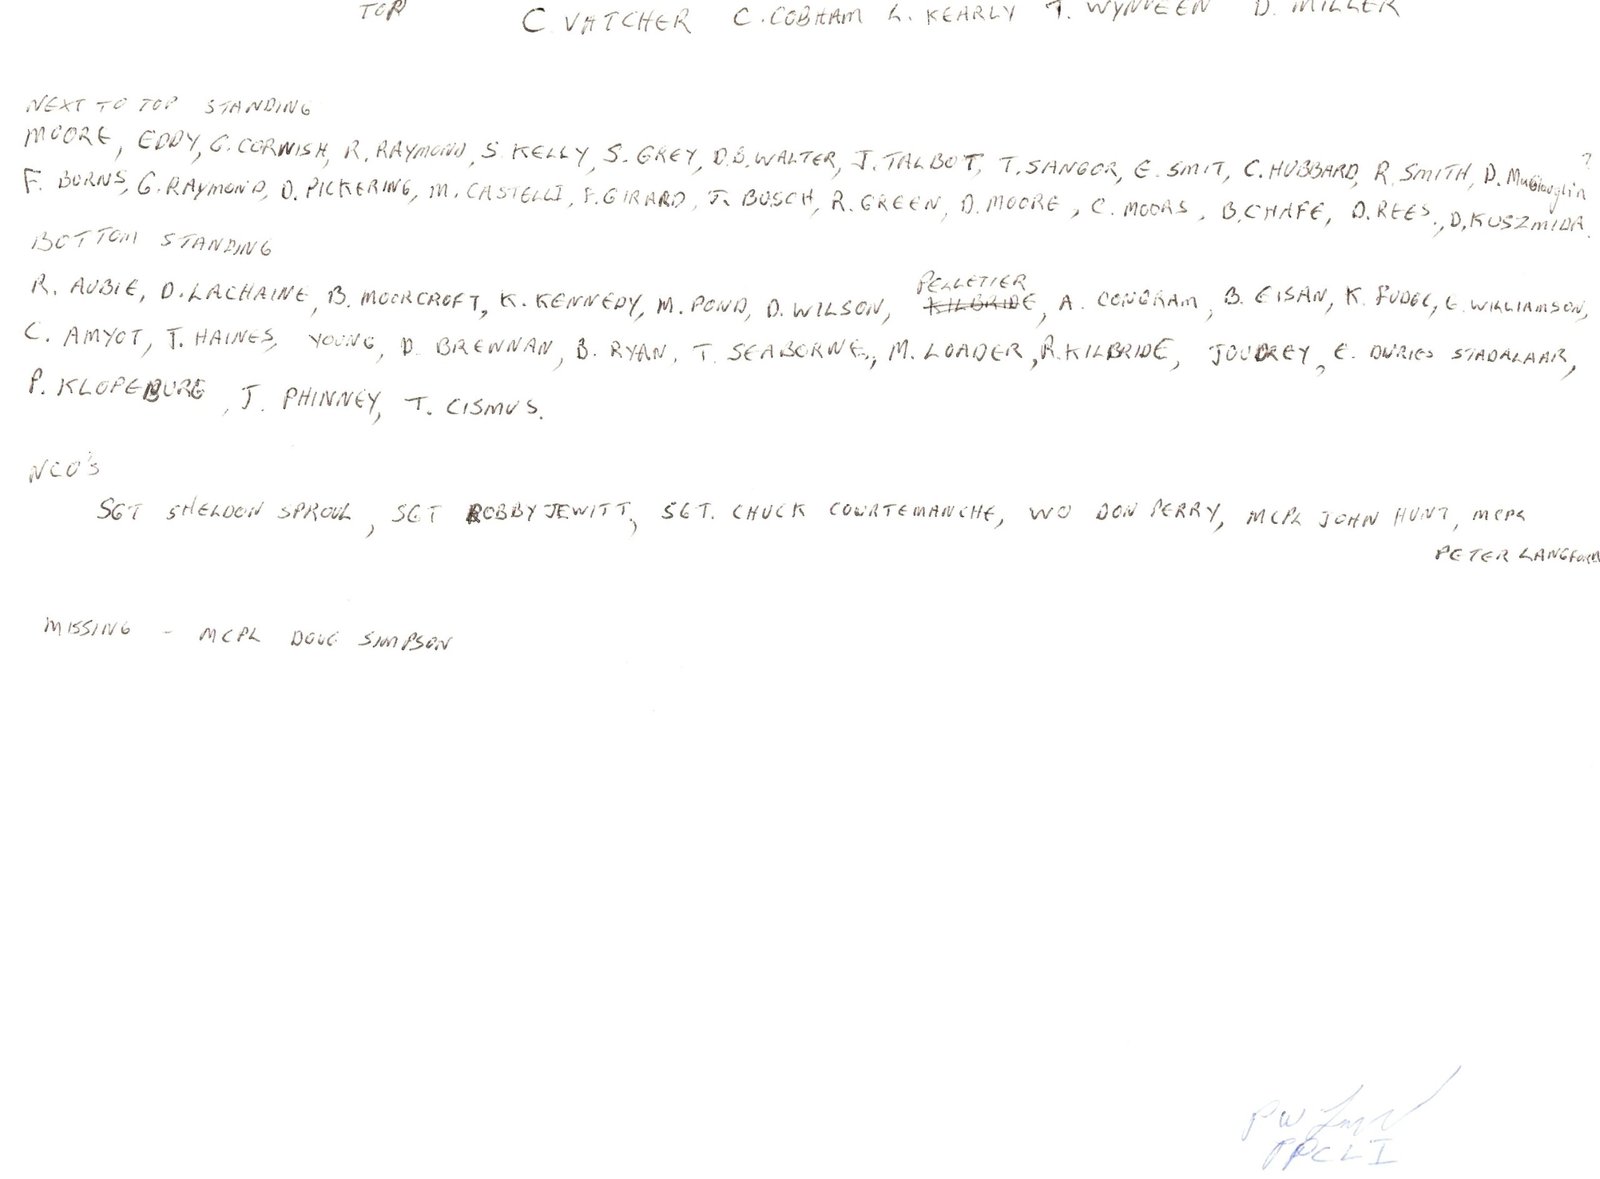 TOP C. VATCHER C. COBHAM L. KEARLY T. WYNVEEN D. MILLER
NEXT TO TOP STANDING
MOORE, EDDY, G. CORNISH, R. RAYMOND, S. KELLY, S. GREY, D.B. WALTER, J. TALBOT, T. SANGOR, E. SMIT, C. HUBBARD, R. SMITH, D. ?
F. BURNS, G. RAYMOND, D. PICKERING, M. CASTELLI, F. GIRARD, J. BUSCH, R. GREEN, D. MOORE, C. MOORS, B. CHAFE, D. REES, D. KUSZMIDA.
BOTTOM STANDING
PELLETIER
R. AUBIE, D. LACHAINE, B. MOORCROFT, K. KENNEDY, M. POND, D. WILSON, KILBRIDE, A. CONGRAM, B. EISAN, K. FUDGE, G. WILLIAMSON,
C. AMYOT, T. HAINES, YOUNG, D. BRENNAN, B. RYAN, T. SEABORNE, M. LOADER, R. KILBRIDE, JOUDREY, E. STADALAAR,
P. KLOPEBURG, J. PHINNEY, T. CISMUS.
NCO'S
SGT SHELDON SPROUL, SGT ROBBY JEWITT, SGT. CHUCK COURTEMANCHE, WO DON PERRY, MCPL JOHN HUNT, MCPL
PETER LANGFORD
MISSING - MCPL DOUG SIMPSON
PW
PPCLI